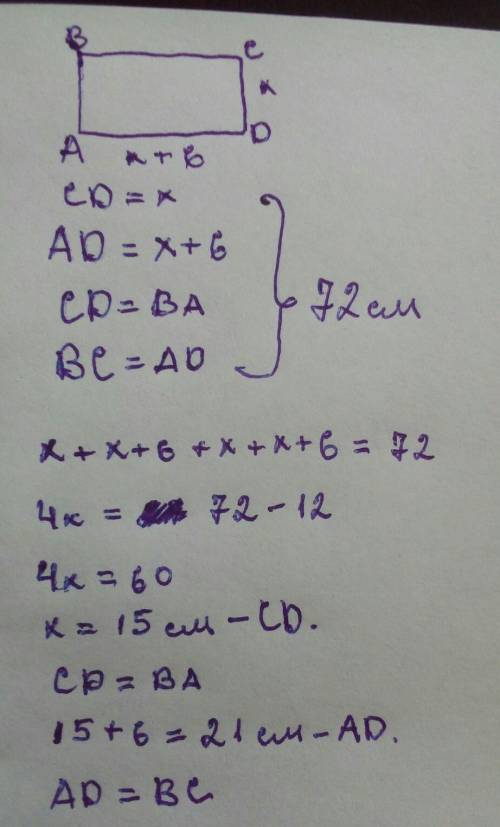 B C
x
A x+6 D
CD = x
AD = x+6
CD = BA
BC = AD
72 см
x + x+6 + x + x+6 = 72
4x = 72 - 12
4x = 60
x = 15 см - CD.
CD = BA
15+6 = 21 см - AD.
AD = BC